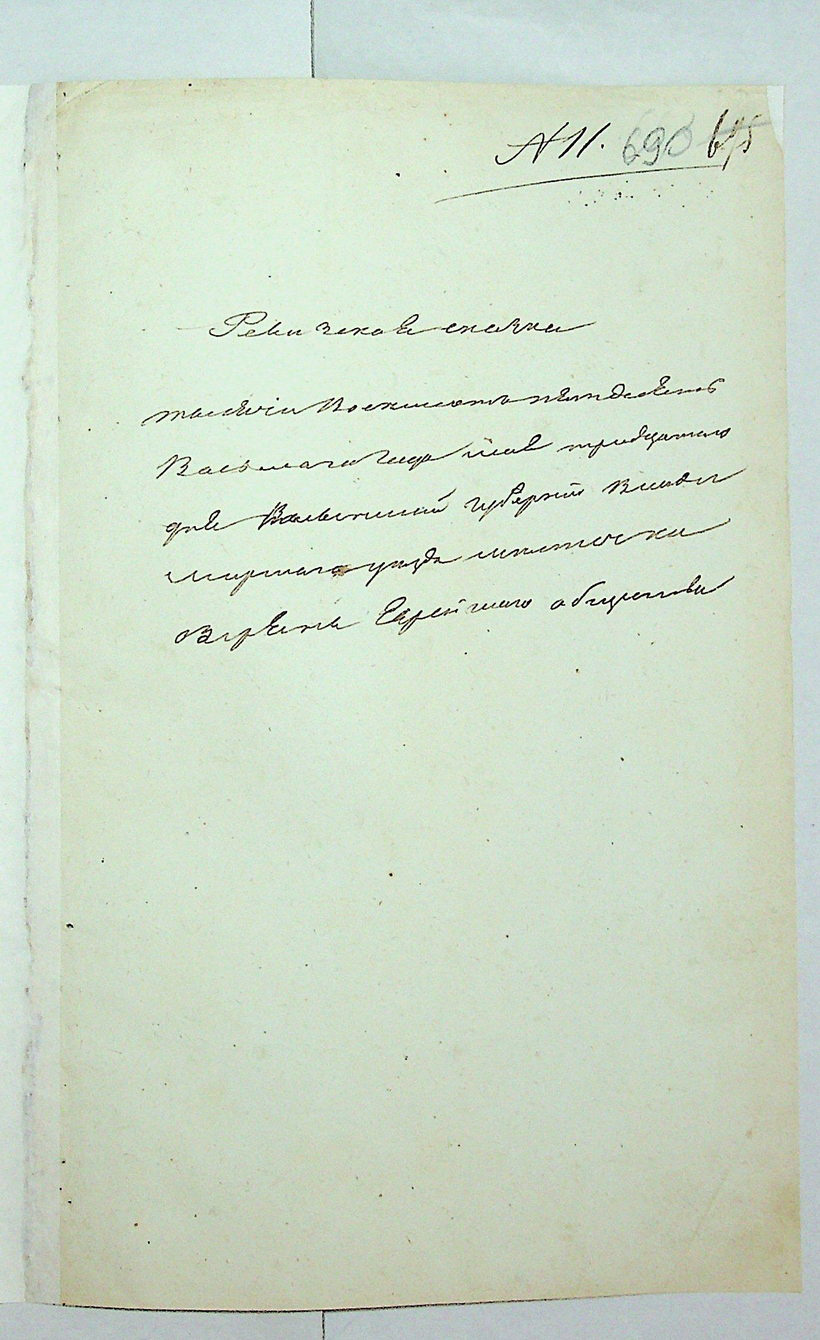 N 11. 690 675
Ревизская сказка
тысячи восемьсотъ пятьдесятъ
Восьмаго года маія тридцатаго
дня Волынской губерніи Влади
мирскаго уѣзда мѣстечка
Озирянъ Еврейскаго общества